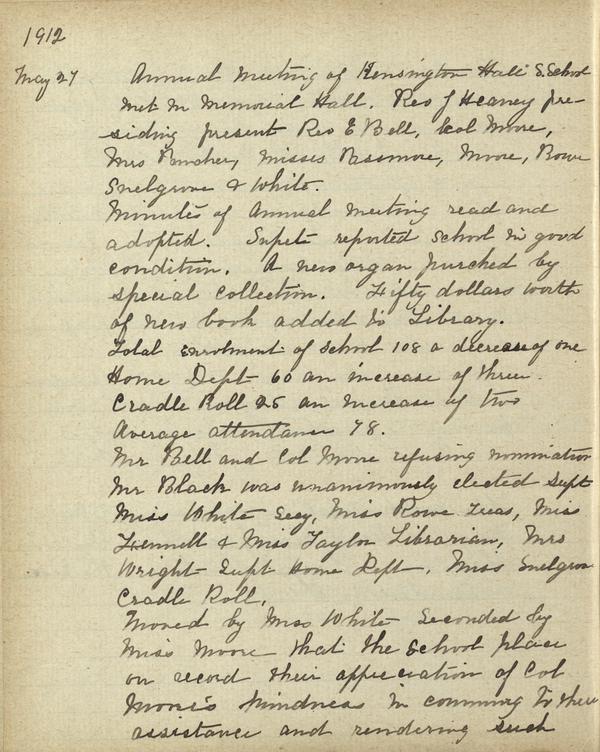 1912
May 27 Annual meeting of Kensington Hall S. School
met in Memorial Hall. Rev J Heaney pre-
siding present Rev E Bell, Col Moore,
Mrs Misses Passmore, Moore, Rowe
Snelgrove & White.
Minutes of Annual meeting read and
adopted. Supets reported School in good
condition. A new organ purched by
special collection. Fifty dollars worth
of new book added to Library.
Total enrolment of School 108 a decrease of one
Home Dept 60 an increase of three.
Cradle Roll 25 an increase of two
Average attendance 78.
Mr Bell and Col Moore refusing nomination
Mr Black was unanimously elected Supt
Miss White Secy, Miss Rowe Treas, Miss
Fennell & Miss Taylor Librarian, Mrs
Wright Supt Home Dept. Miss Snelgrove
Cradle Roll.
Moved by Miss White Seconded by
Miss Moore that the School place
on record their appreciation of Col
Moore's kindness in comming to there
assistance and rendering such